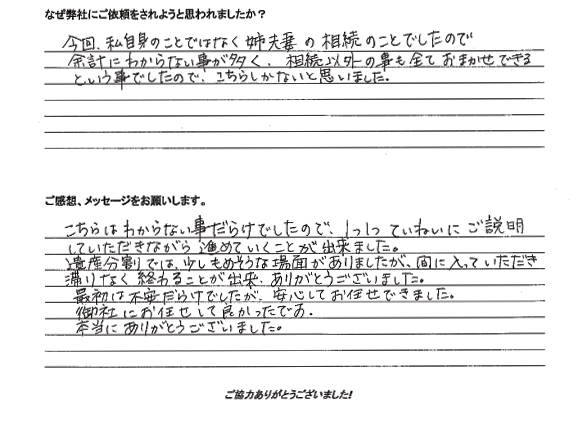 なぜ弊社にご依頼をされようと思われましたか？
今回、私自身のことではなく姉夫妻の相続のことでしたので
余計にわからない事が多く、相続以外の事も全ておまかせできる
という事でしたので、こちらしかないと思いました。
ご感想、メッセージをお願いします。
こちらはわからない事だらけでしたので、1つ1つていねいにご説明
していただきながら進めていくことが出来ました。
遺産分割では、少しもめそうな場面がありましたが、間に入っていただき
滞りなく終わることが出来、ありがとうございました。
最初は不安だらけでしたが、安心してお任せできました。
御社にお任せして良かったです。
本当にありがとうございました。
ご協力ありがとうございました!